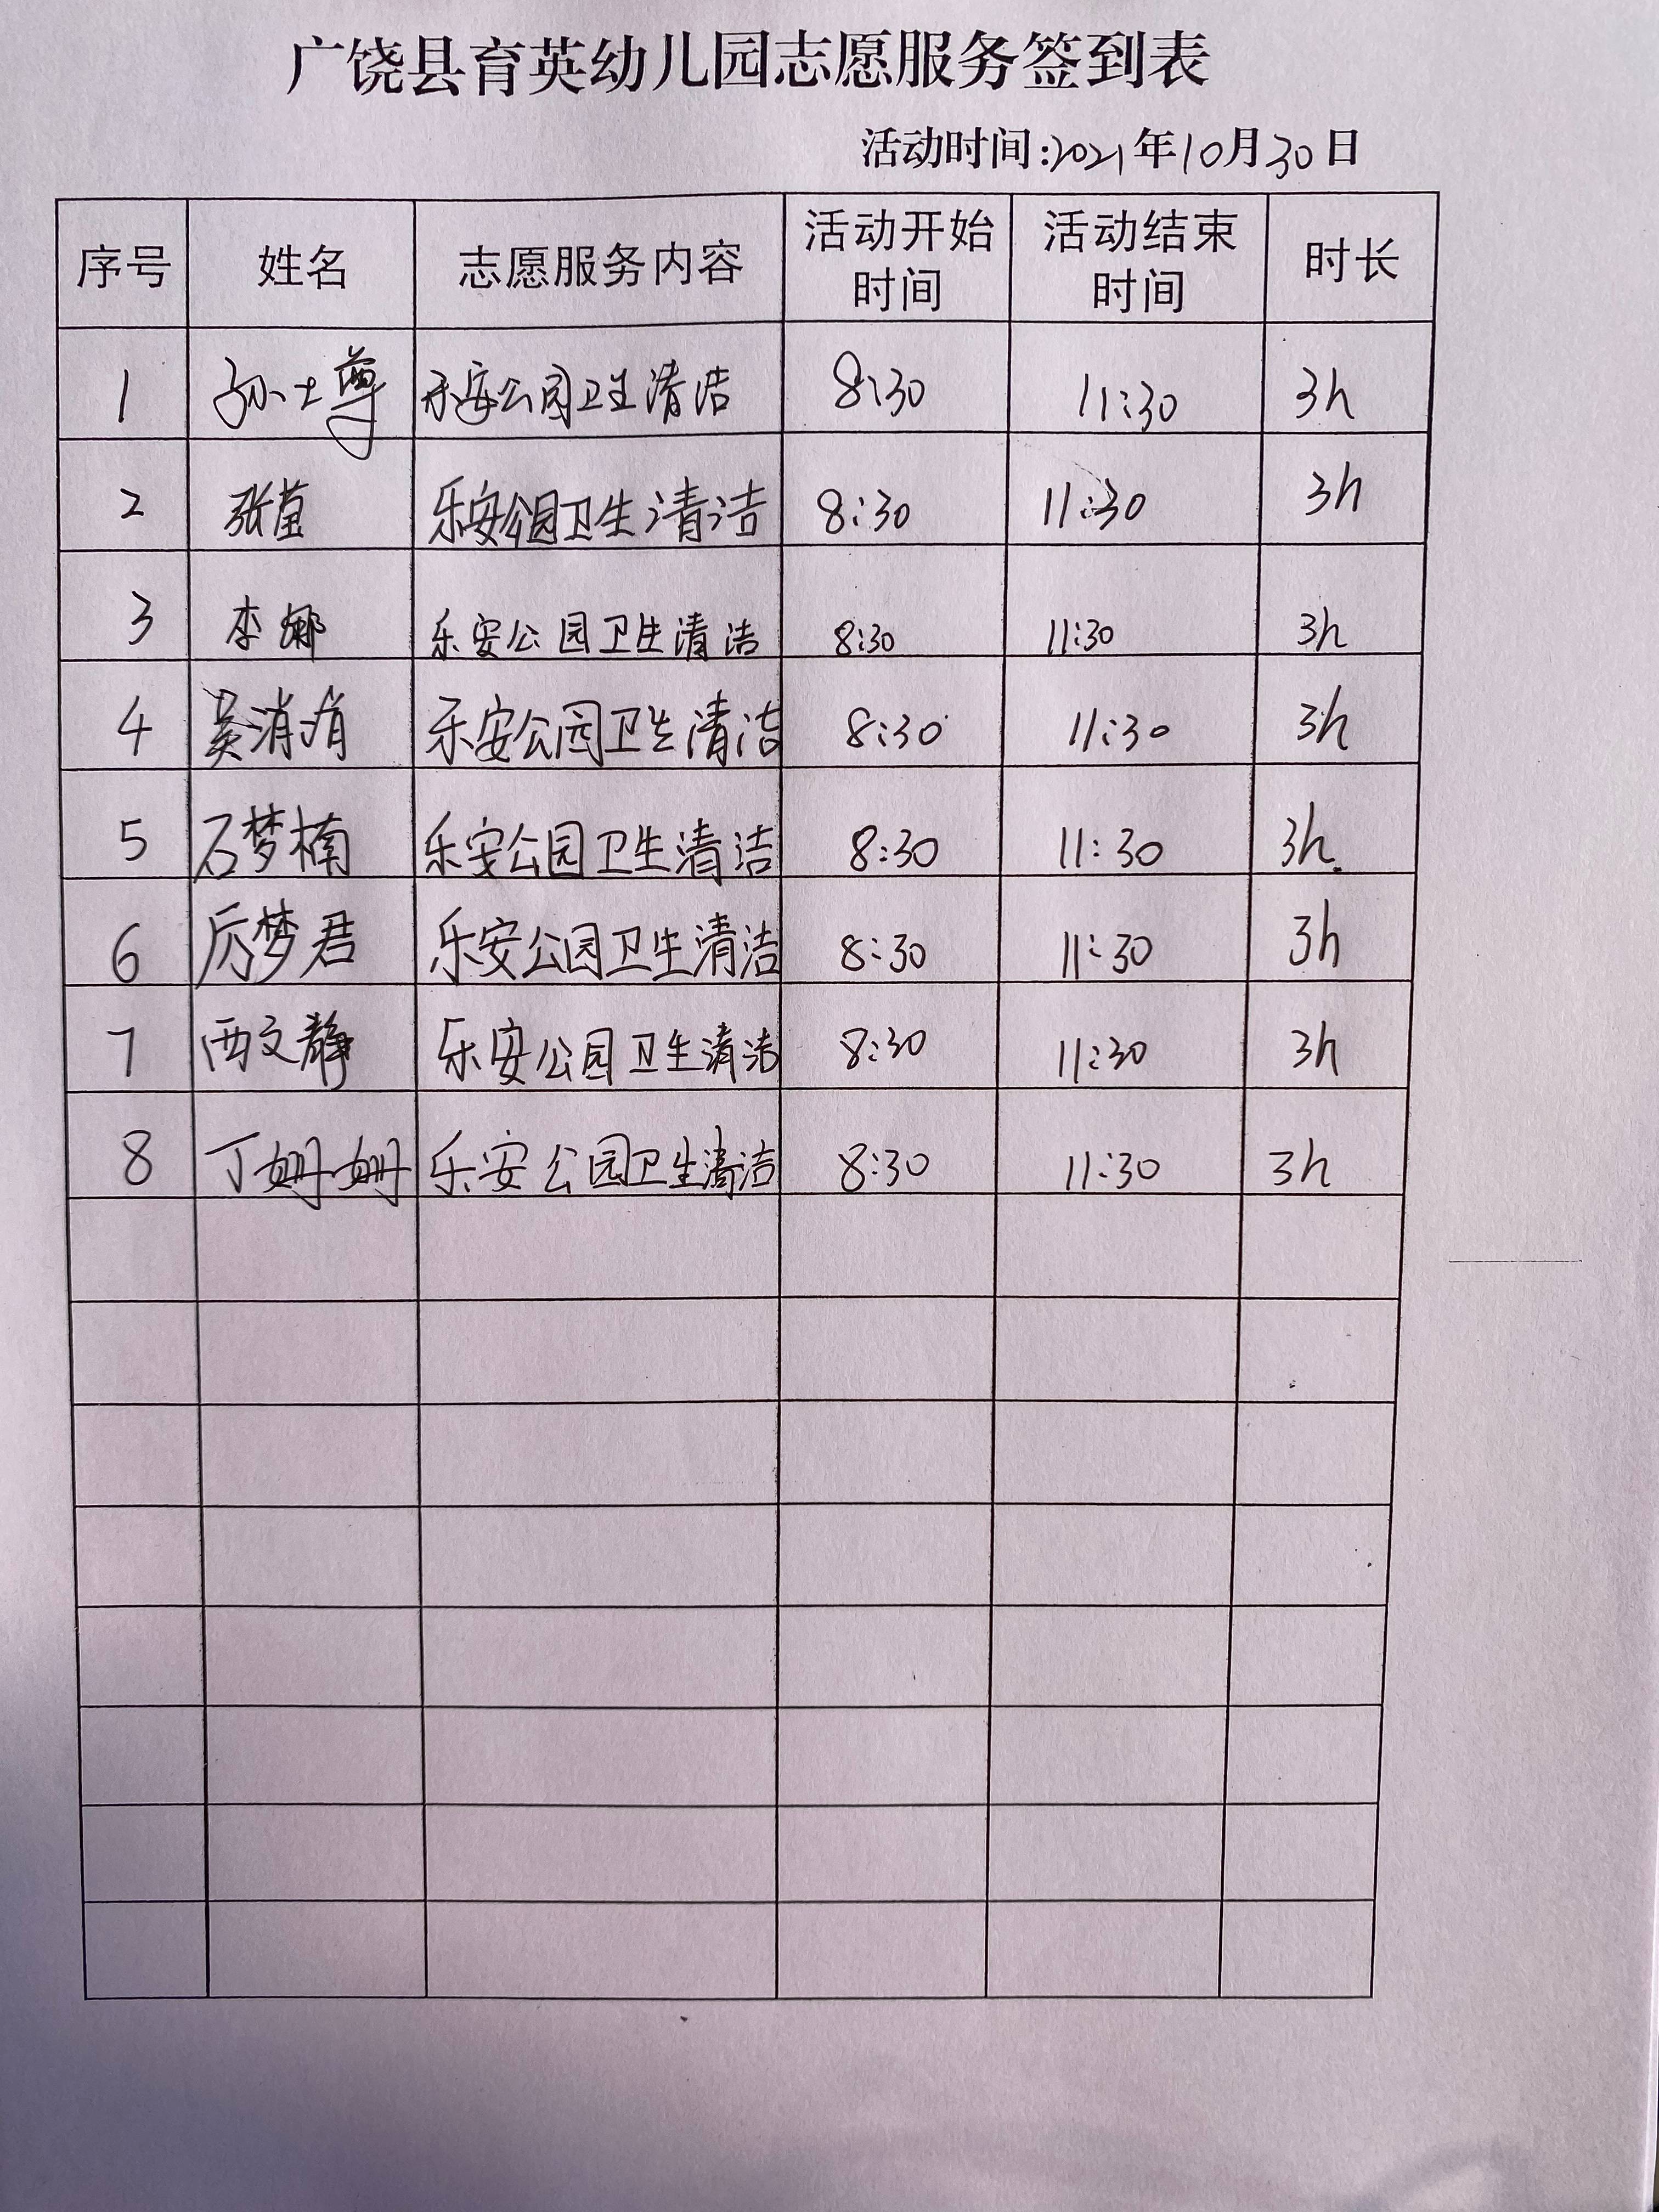 广饶县育英幼儿园志愿服务签到表
活动时间:2021年10月30日
序号 姓名 志愿服务内容 活动开始时间 活动结束时间 时长
1 孙士尊 乐安公园卫生清洁 8:30 11:30 3h
2 张莹 乐安公园卫生清洁 8:30 11:30 3h
3 李娜 乐安公园卫生清洁 8:30 11:30 3h
4 吴消消 乐安公园卫生清洁 8:30 11:30 3h
5 石梦楠 乐安公园卫生清洁 8:30 11:30 3h
6 厉梦君 乐安公园卫生清洁 8:30 11:30 3h
7 西文静 乐安公园卫生清洁 8:30 11:30 3h
8 丁姗姗 乐安公园卫生清洁 8:30 11:30 3h